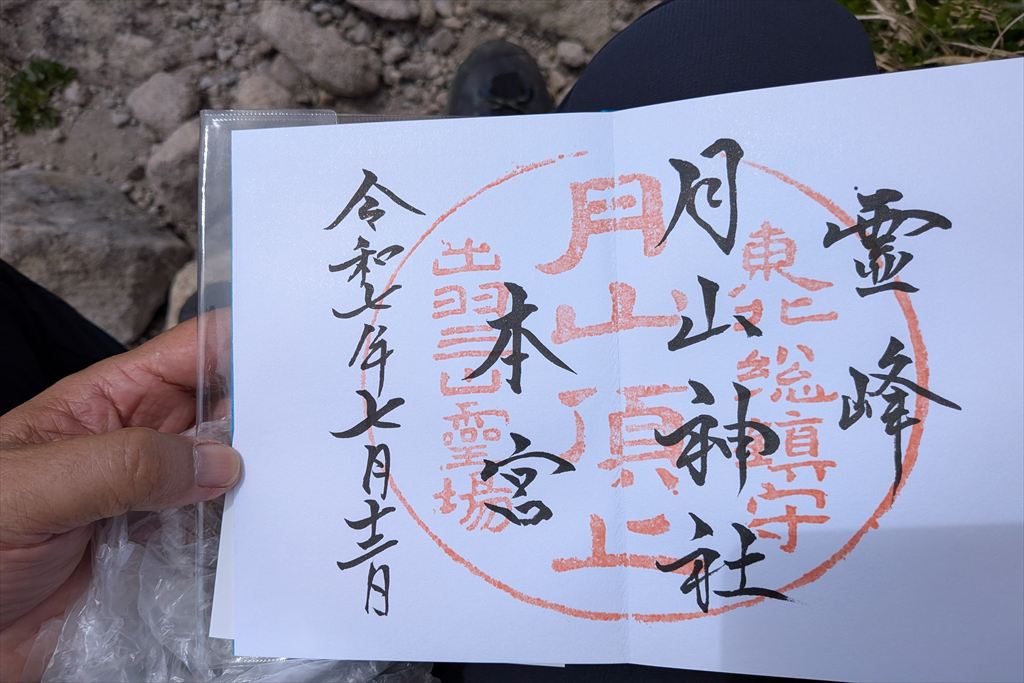 霊峰
月山神社
本宮
令和七年七月十二日
東北総鎮守
月山頂上
出羽三山霊場